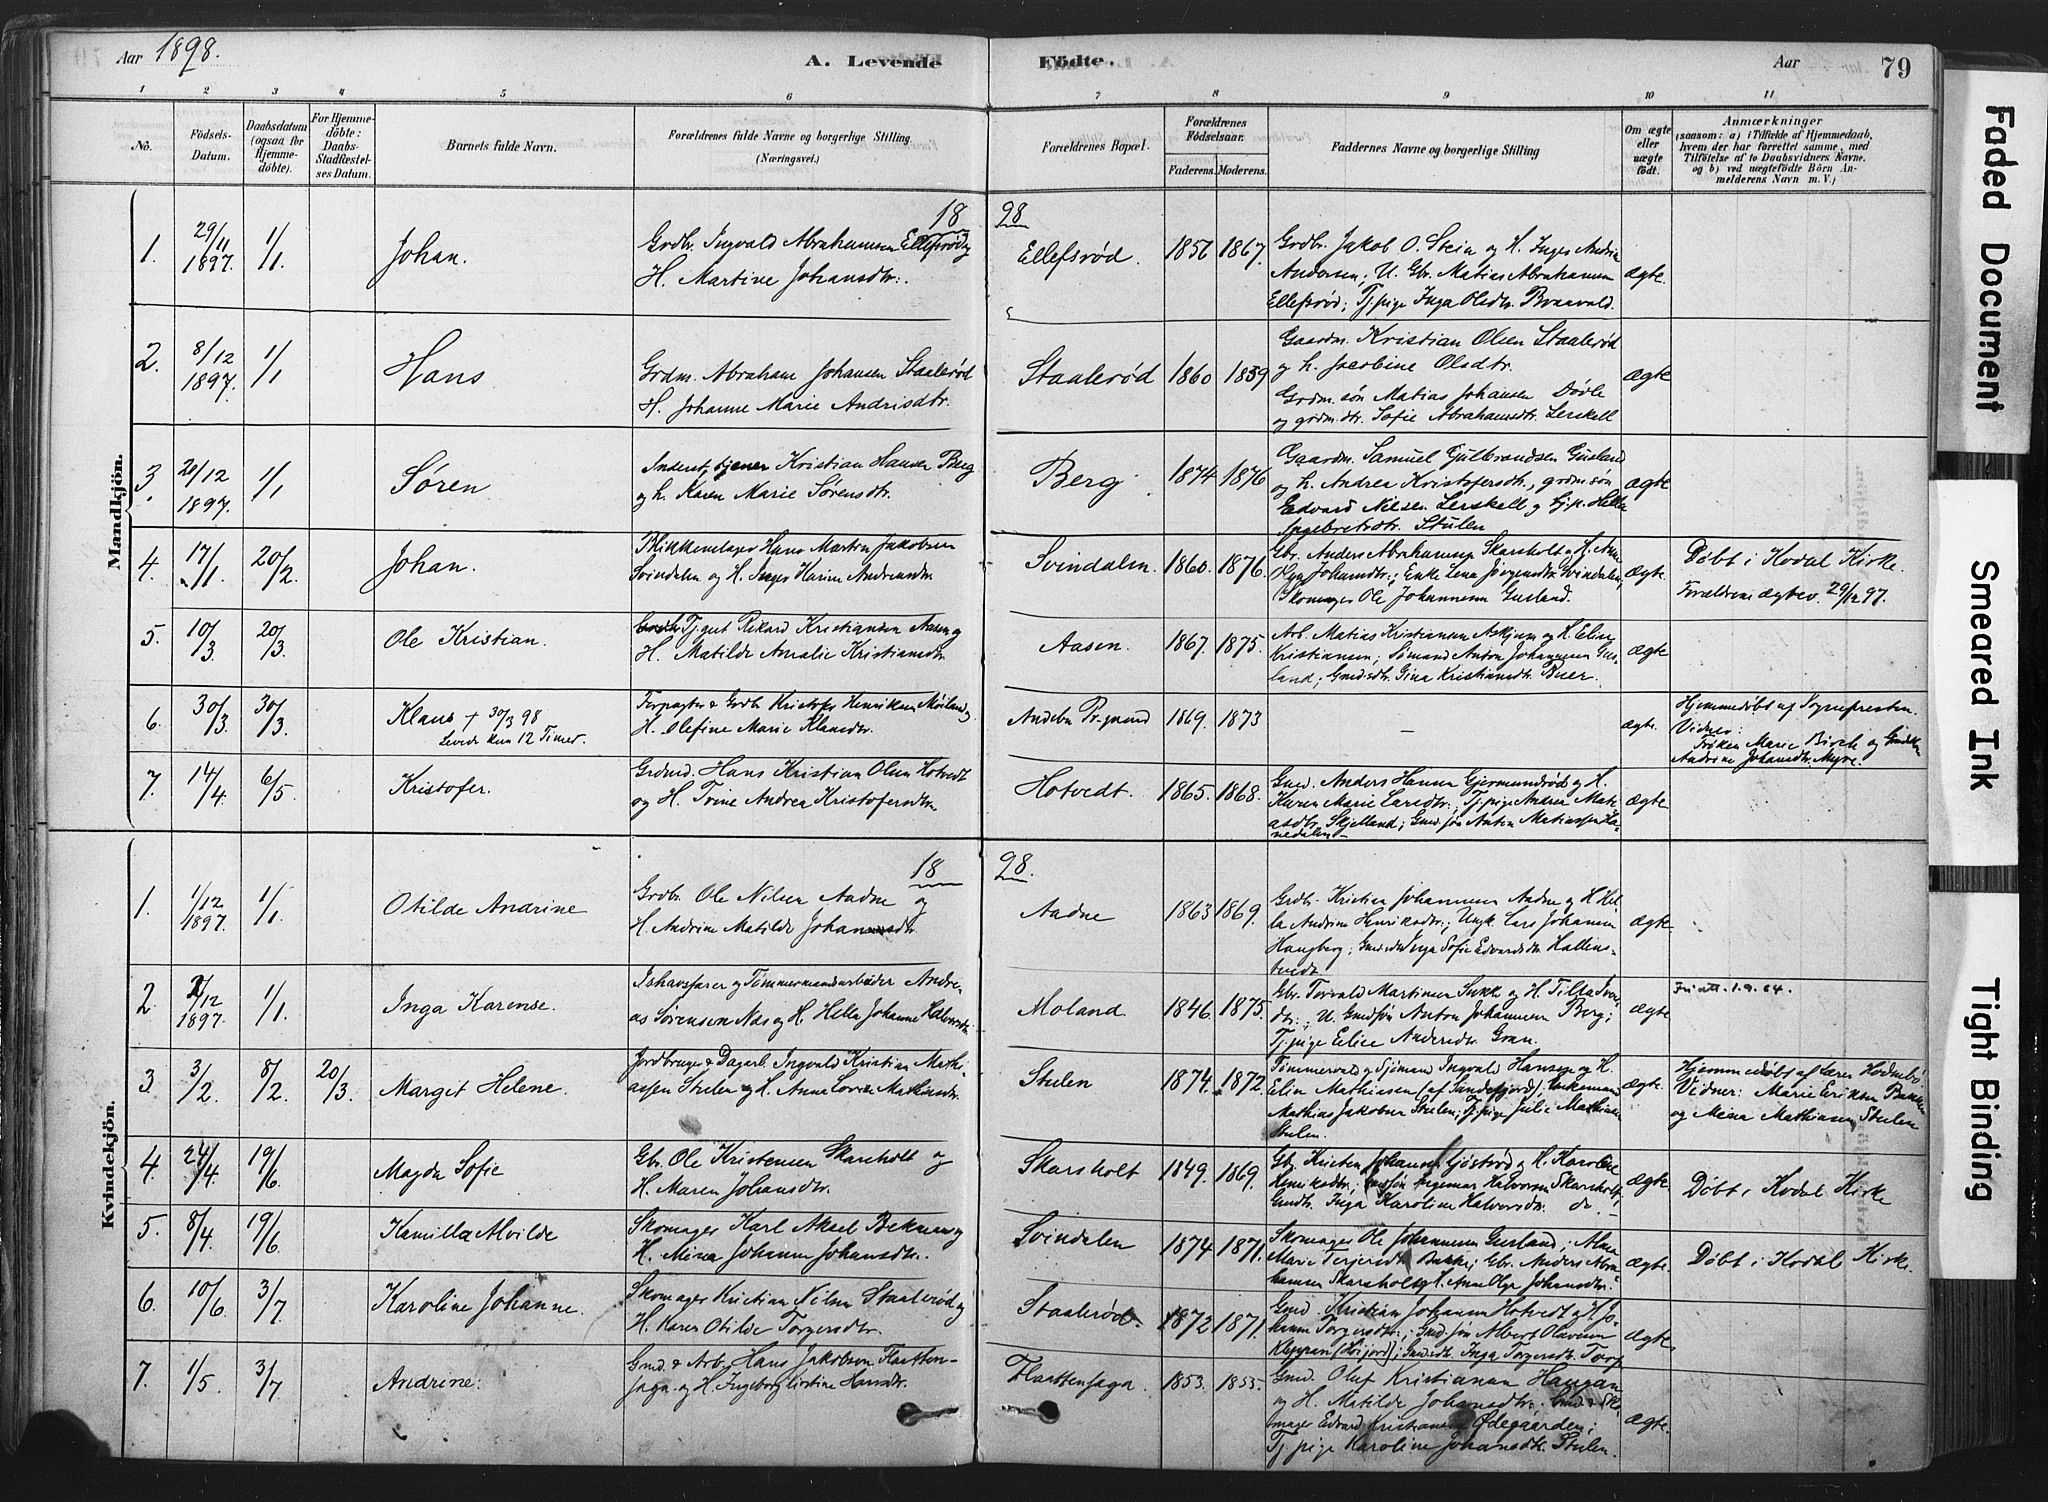 Aar 1898.
A. Levende
Födte.
Aar
79
1 2 3 4 5 6 7 8 9 10 11
No.
Födsels-
Datum.
Daabsdatum
(ogsaa for
Hjemme-
döbte).
For Hjemme-
döbte:
Daabs-
Stadfæstel-
ses Datum.
Barnets fulde Navn.
Forældrenes fulde Navne og borgerlige Stilling.
(Næringsvei.)
Forældrenes Bopæl.
Forældrenes
Födselsaar.
Faderens. Moderens.
Faddernes Navne og borgerlige Stilling
Om ægte
eller
uægte
födt.
Anmærkninger
(saasom: a) i Tilfælde af Hjemmedaab,
hvem der har forrettet samme, med
Tilföielse af to Daabsvidners Navne.
og b) ved uægtefödte Börn An-
melderens Navn m. V.)
Mandkjön.
18 98
1. 29/11 1897. 1/1 Johan.
Grdbr. Ingvald Abrahamsen Ellefsrød og
H. Martine Johansdtr.
Ellefsrød. 1856 1867.
Grdbr. Jakob O. Stein og H. Inger Andrea
Andersen; U. Gbr. Matias Abrahamsen
Ellefsrød; Tj.pige Inga Olsdtr. Braavald.
ægte.
2. 8/12 1897. 1/1 Hans
Grdm. Abraham Johansen Staalerød
H. Johanne Marie Andrisdtr.
Staalerød 1860 1859
Gaardm. Kristian Olsen Staalerød
og h. Jacobine Olsdtr.
Grdm. søn Matias Johansen Døvle
og grdm. dtr. Sofie Abrahamsdtr. Lerskall
ægte
3. 20/12 1897. 1/1 Søren
Inderst, tjener Kristian Hansen Berg
og h. Karen Marie Sørensdtr.
Berg 1874 1876
Gaardm. Samuel Gulbrandsen Gusland
og h. Andrea Kristofersdtr., grdm. søn
Edvard Nilsen Lerskall og tj.p. Hella
Ingebretsdtr. Stulen
ægte
4. 17/1 20/2 Johan.
Blikkenslager Hans Martin Jakobsen
Svindalen og H. Inger Karine Andreasdtr.
Svindalen. 1860. 1876.
Gbr. Anders Abrahamsen Skarsholt og H. Anne
Olga Johansdtr.; Enke Lena Jørgensdtr. Svindalen;
Skomager Ole Johannesen Gusland.
ægte.
Døbt i Kodal Kirke.
Forældrene ægtev. 29/12 97.
5. 10/3 20/3 Ole Kristian.
Tj.gut Rikard Kristiansen Aasen og
H. Matilde Amalie Kristiansdtr.
Aasen. 1867. 1875.
Arb. Matias Kristiansen Askjum og H. Elise
Kristiansen; Sømand Anton Johannesen Gus-
land; Gmdsdtr. Gina Kristiansdtr. Buer.
ægte
6. 30/3 30/3 Klaus + 30/3 98
Levede kun 12 Timer.
Forpagter & Grdb. Kristofer Henriksen Møiland og
H. Olefine Marie Klausdtr.
Andebu Pr.gaard 1869. 1873 –
ægte.
Hjemmedøbt af Sognepresten.
Vidner:
Frøken Marie Birch og
Andrine Johansdtr. Myre.
7. 14/4 6/5 Kristofer.
Grdmd. Hans Kristian Olsen Hotvedt
og H. Trine Andrea Kristofersdtr.
Hotvedt. 1865. 1868.
Gmd. Anders Hansen Gjermundrød og H.
Karen Marie Larsdtr.; Tj.pige Andrea Mati-
asdtr. Skjelland; Gmd. søn Anton Matiassen Ha-
nedalen.
ægte
Kvindekjön.
18 98.
1. 1/12 1897. 1/1 Otilde Andrine
Grdbr. Ole Nilsen Aadne og
H. Andrine Matilde Johansdtr.
Aadne 1863 1869.
Grdbr. Kristian Johannesen Aadne og H. Hel-
la Andrine Henriksdtr.; Ungk. Lars Johansen
Haugberg; Gmd.dtr. Inga Sofie Edvardsdtr. Hallens-
tvedt.
ægte.
2. 2/12 1897. 1/1 Inga Karense.
Ishavsfarer og Tømmermandsarbeider Andre-
as Sørensen Næs og H. Hella Johanne Halvorsdtr.
Moland 1846. 1875.
Gbr. Torvald Martinsen Sukke og H. Tilla Ivers-
dtr.; U. Gmdsøn Anton Johannesen Berg;
Tj.pige Elise Andersdtr. Gran.
ægte
Friatt. 1.9.64.
3 3/2 8/2 20/3 Marget Helene.
Jordbruger & Dagarb. Ingvald Kristian Math-
iassen Stulen og H. Anne Lovise Mathiasdtr.
Stulen 1874. 1872.
Tømmermd og Sjømand Ingvald Hansen og H.
Elin Mathiasen (af Sandefjord); Enkemand
Mathias Jakobsen Stulen; Tj.pige Julie Mathisen
Stulen.
ægte.
Hjemmedøbt af Lærer Hodnebø.
Vidner: Marie Eriksen Bakken
og Mena Mathiasen Stulen
4. 24/4 19/6 Magda Sofie
Gbr. Ole Kristensen Skarsholt og
H. Maren Johansdtr.
Skarsholt 1849. 1869.
Gbr. Kristen Johansen Gjøstrød og H. Karoline
Henriksdtr.; Gmdsøn Ingemar Halvorsen Skarsholt;
Gmdtr. Inga Karoline Halvorsdtr. do.
ægte
Døbt i Kodal Kirke
5. 8/4 19/6 Kamilla Alvilde
Skomager Karl Aksel Bekman og
H. Mina Johanne Johansdtr.
Svindalen 1874 1871.
Skomager Ole Johannesen Gusland; Alma
Marie Terjersdtr. Bakke; Gbr. Anders Abra-
hamsen Skarsholt og H. Anne Olga Johansdtr.
ægte.
Døbt i Kodal Kirke.
6. 10/6 3/7 Karoline Johanne.
Skomager Kristian Nilsen Staalerød og
H. Karen Otilde Torgersdtr.
Staalerød. 1872 1871.
Gmd. Kristian Johansen Hotvedt og H. Jo-
hanne Torgersdtr.; Gmd søn Albert Olavesen
Kleppan (Høijord); Gmdsdtr. Inga Torgersdtr. Torp
ægte
7. 1/5 3/7 Andrine.
Gmd. & Arb. Hans Jakobsen Flaatten-
jaga og H. Ingeborg Kirstine Hansdtr.
Flaattenjaga 1853. 1855.
Gmd. Oluf Kristiansen Haugan
og H. Matilde Johansdtr.; Gmd. & Sko-
mager Edvard Kristiansen Ødegaarden;
Tj.pige Karoline Johansdtr. Stulen.
ægte.
Faded Document
Smeared Ink
Tight Binding